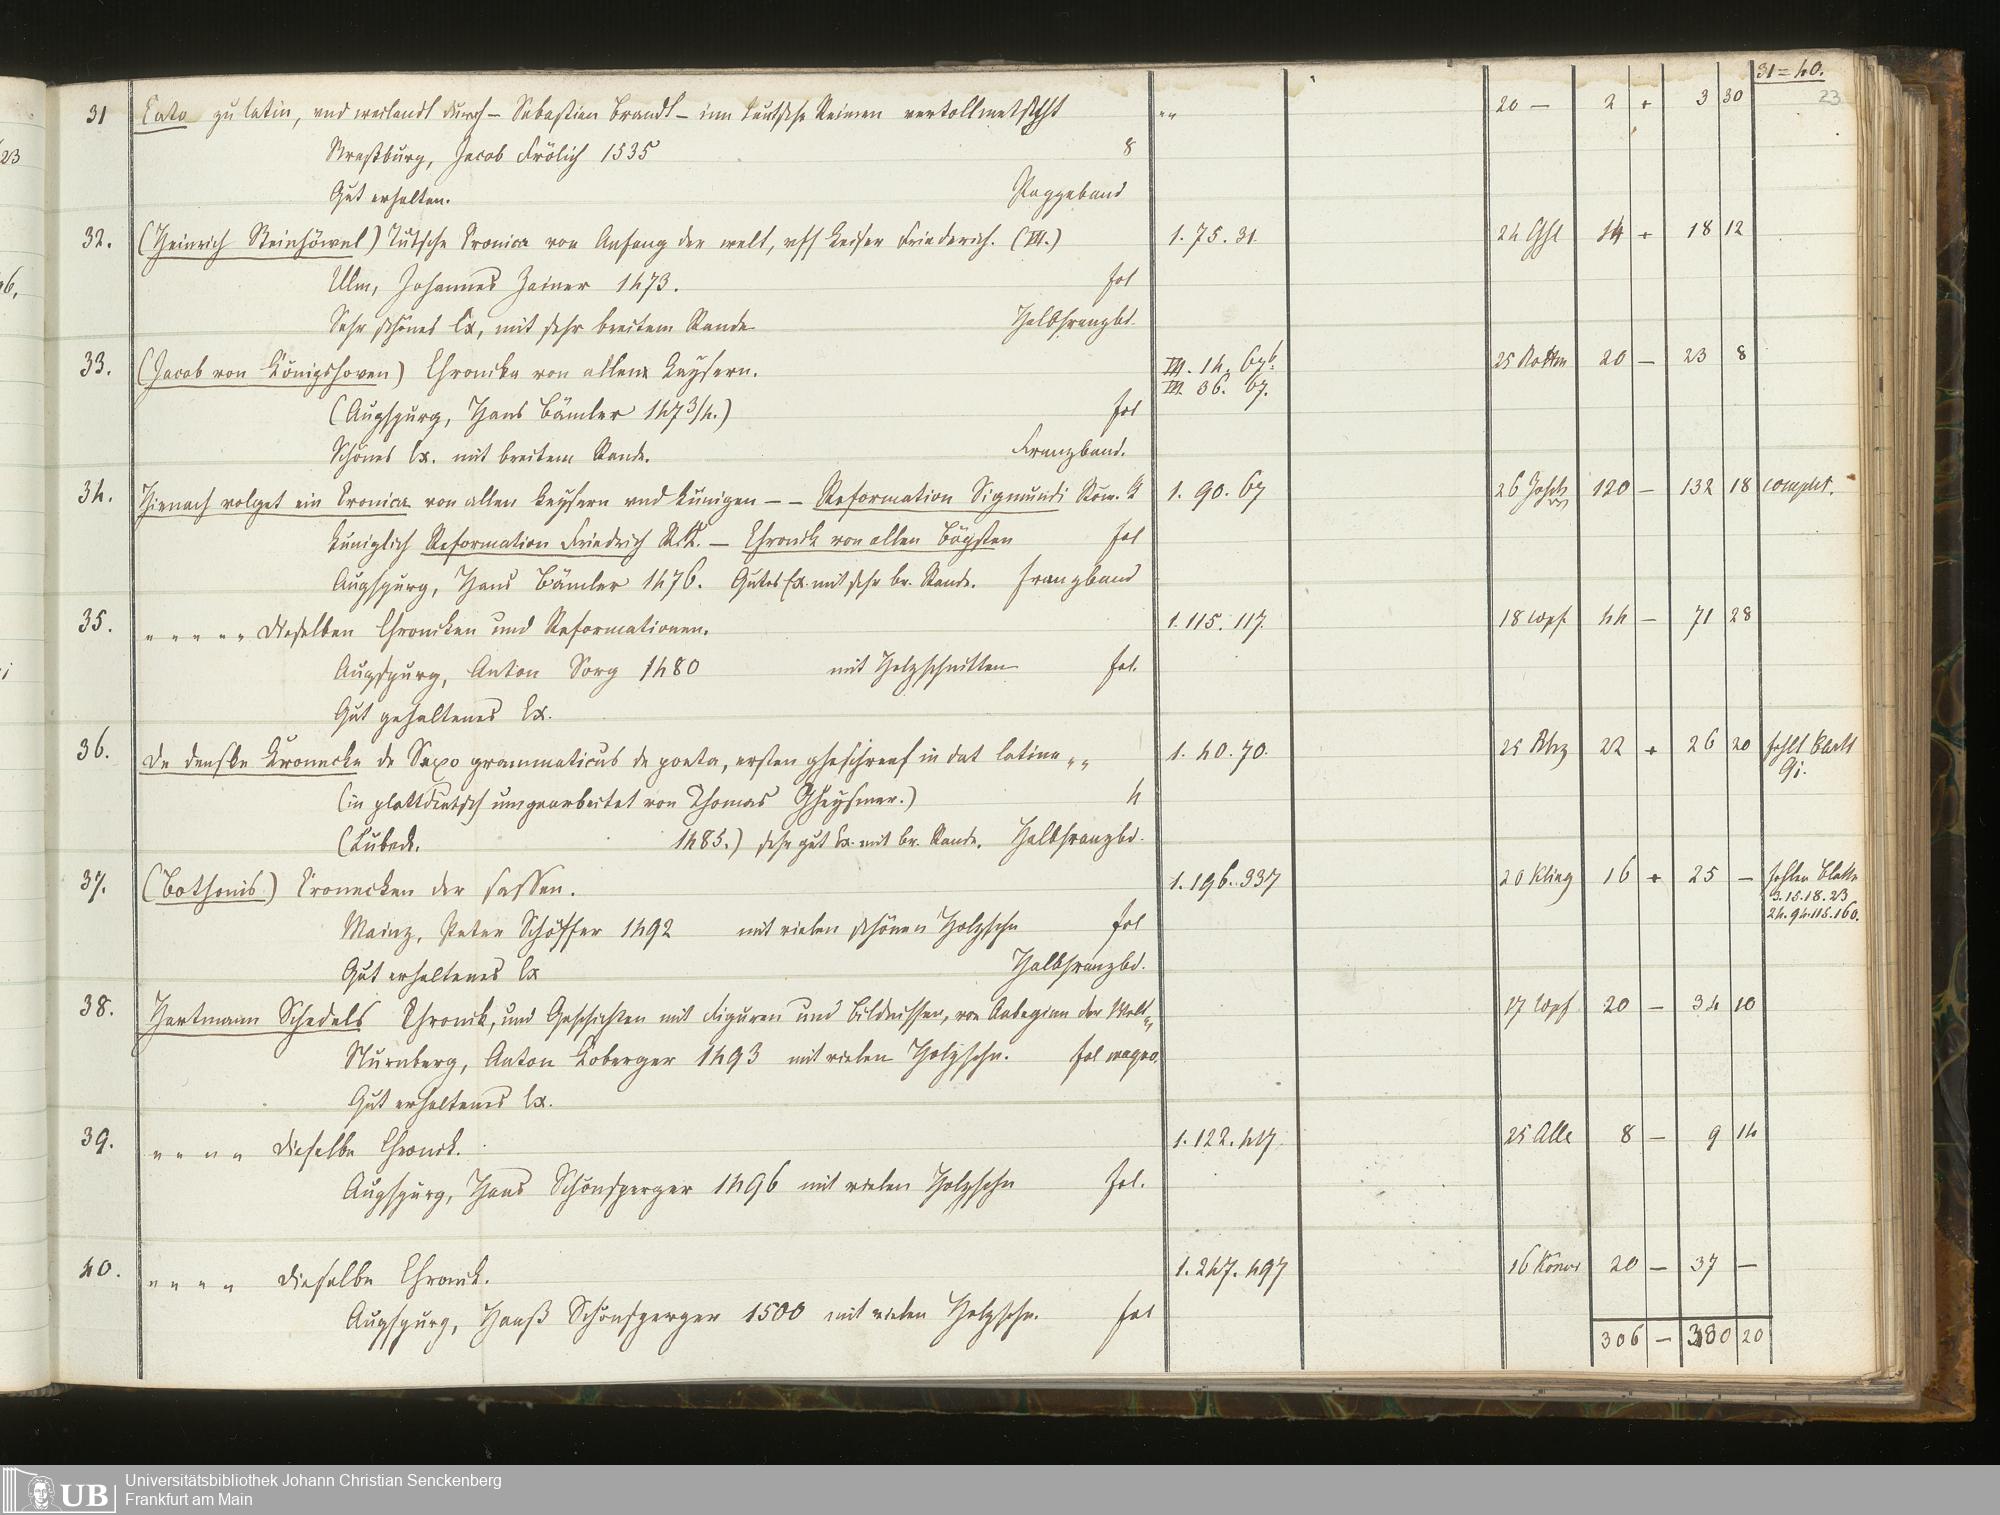 31=40.
23
31 Cato zu latin, vnd weilandt durch – Sebastian Brandt – inn teutsche Reimen vertollmetscht „ 20 — 2 + 3 30
Straßburg, Jacob Frölich 1535 8
Gut erhalten. Pappeband
32. (Heinrich Steinhöwel) Tütsche Cronica von Anfang der welt, vff keiser Friederich. (III.) 1. 75. 31. 24 14 + 18 12
Ulm, Johannes Zainer 1473. fol
Sehr schönes Ex, mit sehr breitem Rande Halbfranzbd.
33. (Jacob von Königshoven) Chronika von allen Keysern. III. 14. 67b. 25 20 — 23 8
III. 36. 67.
(Augspurg, Hans Bämler 1473/4.) fol
Schönes Ex. mit breitem Rande. Franzband.
34. Hienach volget ein Cronica von allen keysern vnd künigen – – Reformation Sigmundi Röm. K 1. 90. 67 26 120 — 132 18 complet.
küniglich Reformation Friedrich R.K. – Chronik von allen Bäpsten fol
Augspurg, Hans Bämler 1476. Gutes Ex. mit sehr br. Rande. Franzband
35. „ „ „ „ „ Dieselben Chroniken und Reformationen. 1. 115. 117. 18 44 — 71 28
Augspurg, Anton Sorg 1480 mit Holzschnitten fol.
Gut gehaltenes Ex.
36. De denske Kronecke de Saxo grammaticus de poeta, ersten gheschreef in dat latine „ 1. 40. 70. 25 22 + 26 20 fehlt Blatt
(in plattdeutsch umgearbeitet von Thomas Gheysmer.) 4
(Lübeck. 1485.) sehr gut Ex. mit br. Rande. Halbfranzbd.
37. (Bothonis) Cronecken der sassen. 1. 196. 337 20 Kling 16 + 25 — fehlen Blatt
3. 15. 18. 23
24. 94. 115. 160.
Mainz, Peter Schöffer 1492 mit vielen schönen Holzschn fol
Gut erhaltenes Ex Halbfranzbd.
38. Hartmann Schedels Chronik, und Geschichten mit Figuren und Bildnissen, von Anbeginn der Welt „ 17 20 — 34 10
Nürnberg, Anton Koberger 1493 mit vielen Holzschn. fol magno.
Gut erhaltenes Ex.
39. „ „ „ „ Dieselbe Chronik. 1. 122. 417. 25 Alle 8 — 9 14
Augspurg, Hans Schönsperger 1496 mit vielen Holzschn fol.
40. „ „ „ „ Dieselbe Chronik. 1. 247. 497 16 20 — 37 —
Augspurg, Hanß Schönsperger 1500 mit vielen Holzschn. fol
306 — 380 20
UB
Universitätsbibliothek Johann Christian Senckenberg
Frankfurt am Main